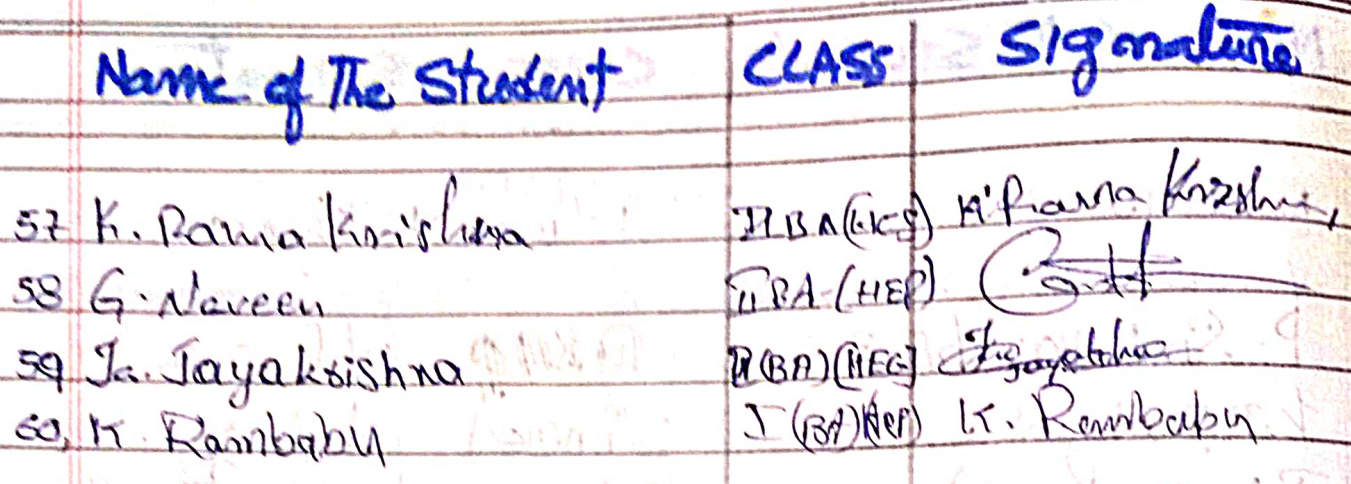 Name of The Student CLASS Signature
57 K. Rama Krishna II BA (HCS) K. Rama Krishna,
58 G. Naveen II BA (HEP)
59 Jayakrishna II (BA) (HEG)
60, K. Rambabu I (BA) (HEP) K. Rambabu